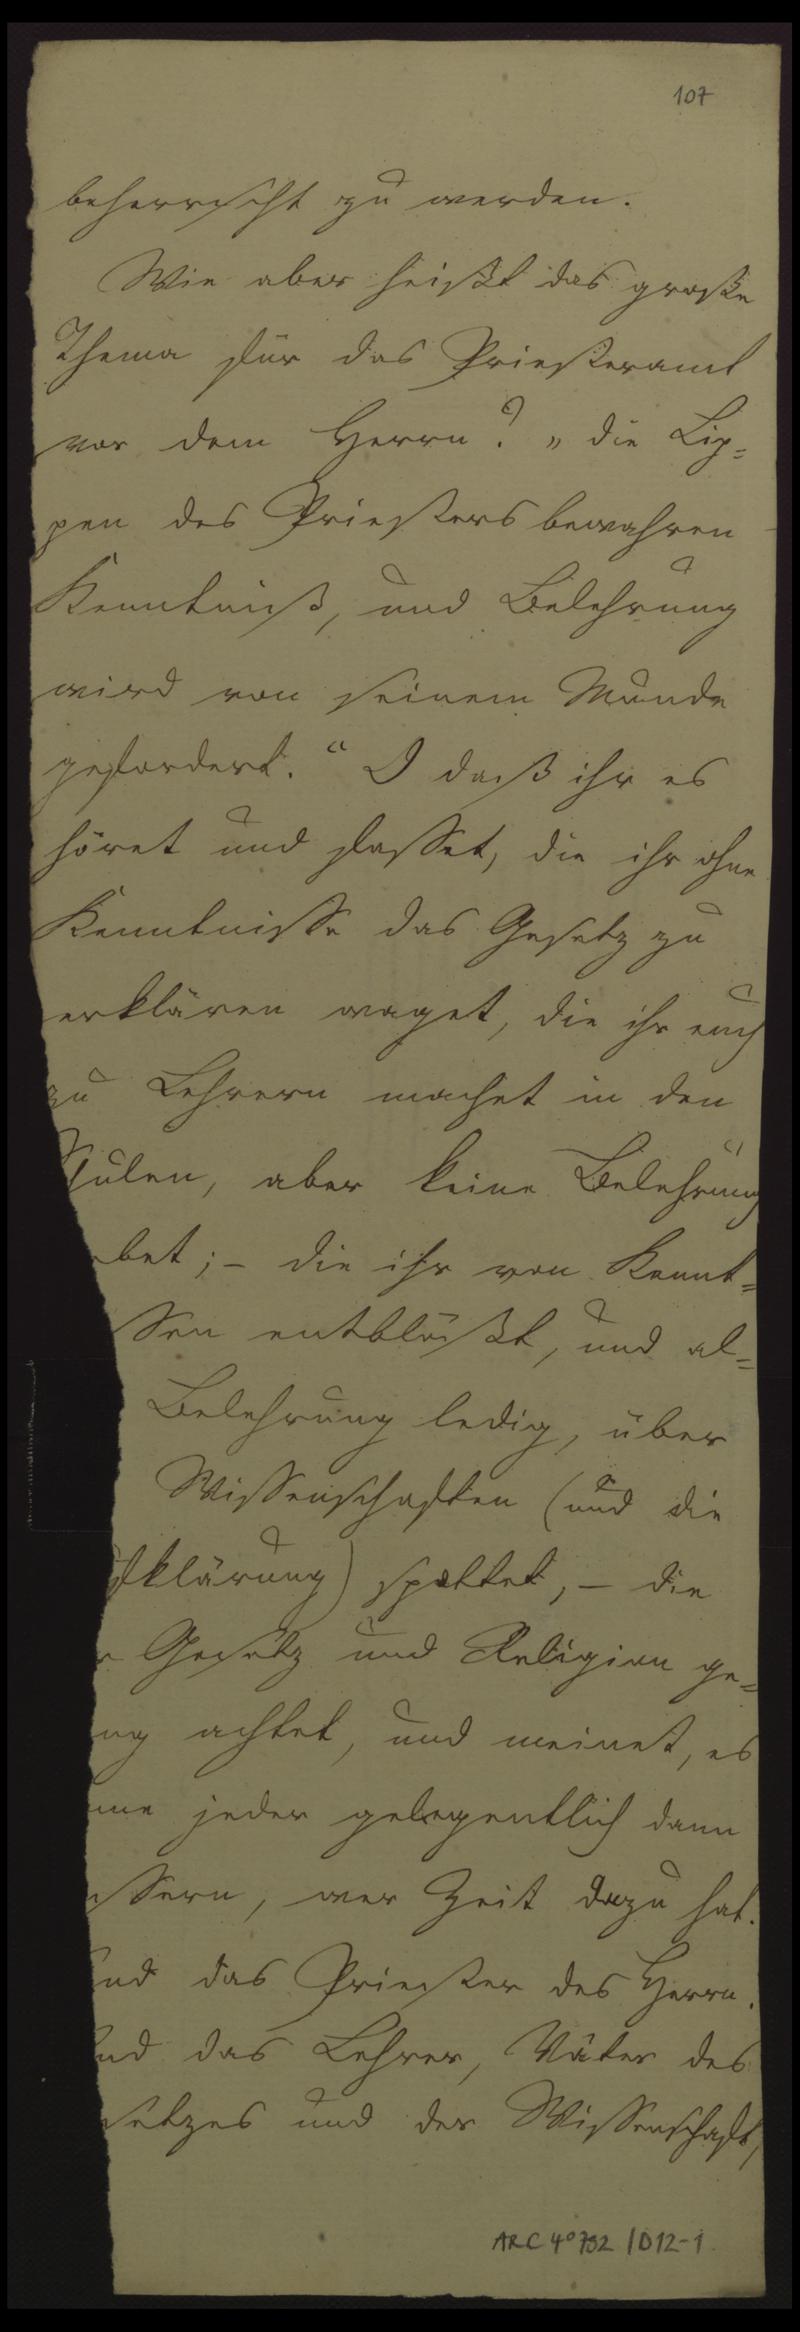 107
beherrscht zu werden.
Wie aber heißt das große
Thema für das Priesteramt
vor dem Herrn? „die Lip-
pen des Priesters bewahren
Kenntniß, und Belehrung
wird von seinem Munde
gefordert.“ O daß ihr es
höret und fasset, die ihr ohne
Kenntnisse das Gesetz zu
erklären waget, die ihr euch
zu Lehrern machet in den
hulen, aber keine Belehrung
abet; – die ihr von Kennt-
ssen entblößt, und al-
Belehrung ledig, über
Wissenschaften (und die
fklärung) spottet, – die
r Gesetz und Religion ge-
ng achtet, und meinet, es
nne jeder gelegentlich dann
ssern, wer Zeit dazu hat.
ind das Priester des Herrn.
ind das Lehrer, Väter des
setzes und der Wissenschaft,
ARC 4° 792 / D12-1